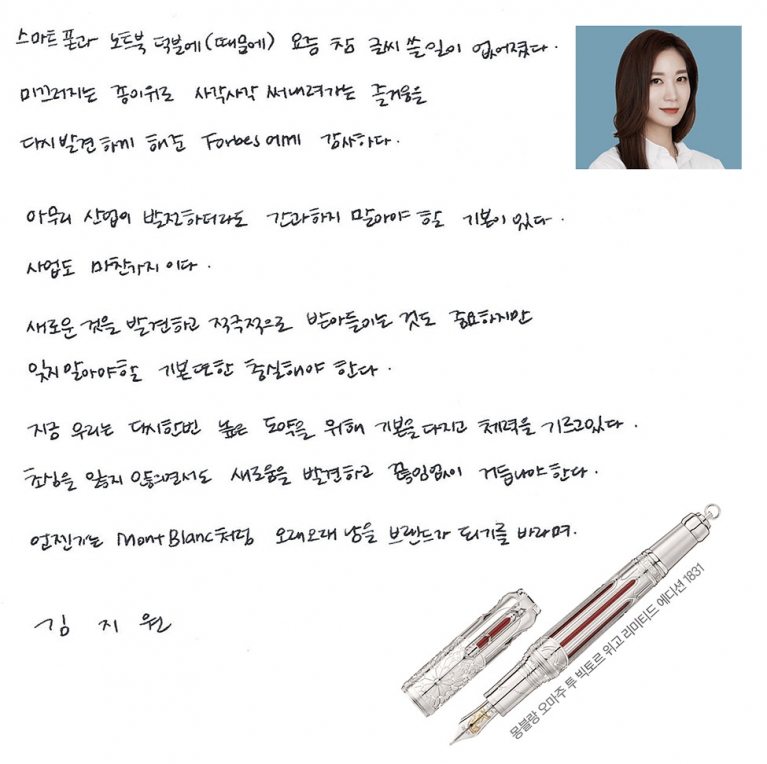 스마트폰과 노트북 덕분에(때문에) 요즘 참 글씨 쓸일이 없어졌다.
미끄러지는 종이위로 사각사각 써내려가는 즐거움을
다시 발견하게 해준 Forbes에게 감사하다.
아무리 산업이 발전하더라도 간과하지 말아야 할 기본이 있다.
사업도 마찬가지이다.
새로운 것을 발견하고 적극적으로 받아들이는 것도 중요하지만
잊지 말아야할 기본또한 충실해야 한다.
지금 우리는 다시한번 높은 도약을 위해 기본을 다지고 체력을 기르고있다.
초심을 잃지 않으면서도 새로움을 발견하고 끊임없이 거듭나야한다.
언젠가는 MontBlanc처럼 오래오래 남을 브랜드가 되기를 바라며.
김 지 원
몽블랑 오마주 투 빅토르 위고 리미티드 에디션 1831